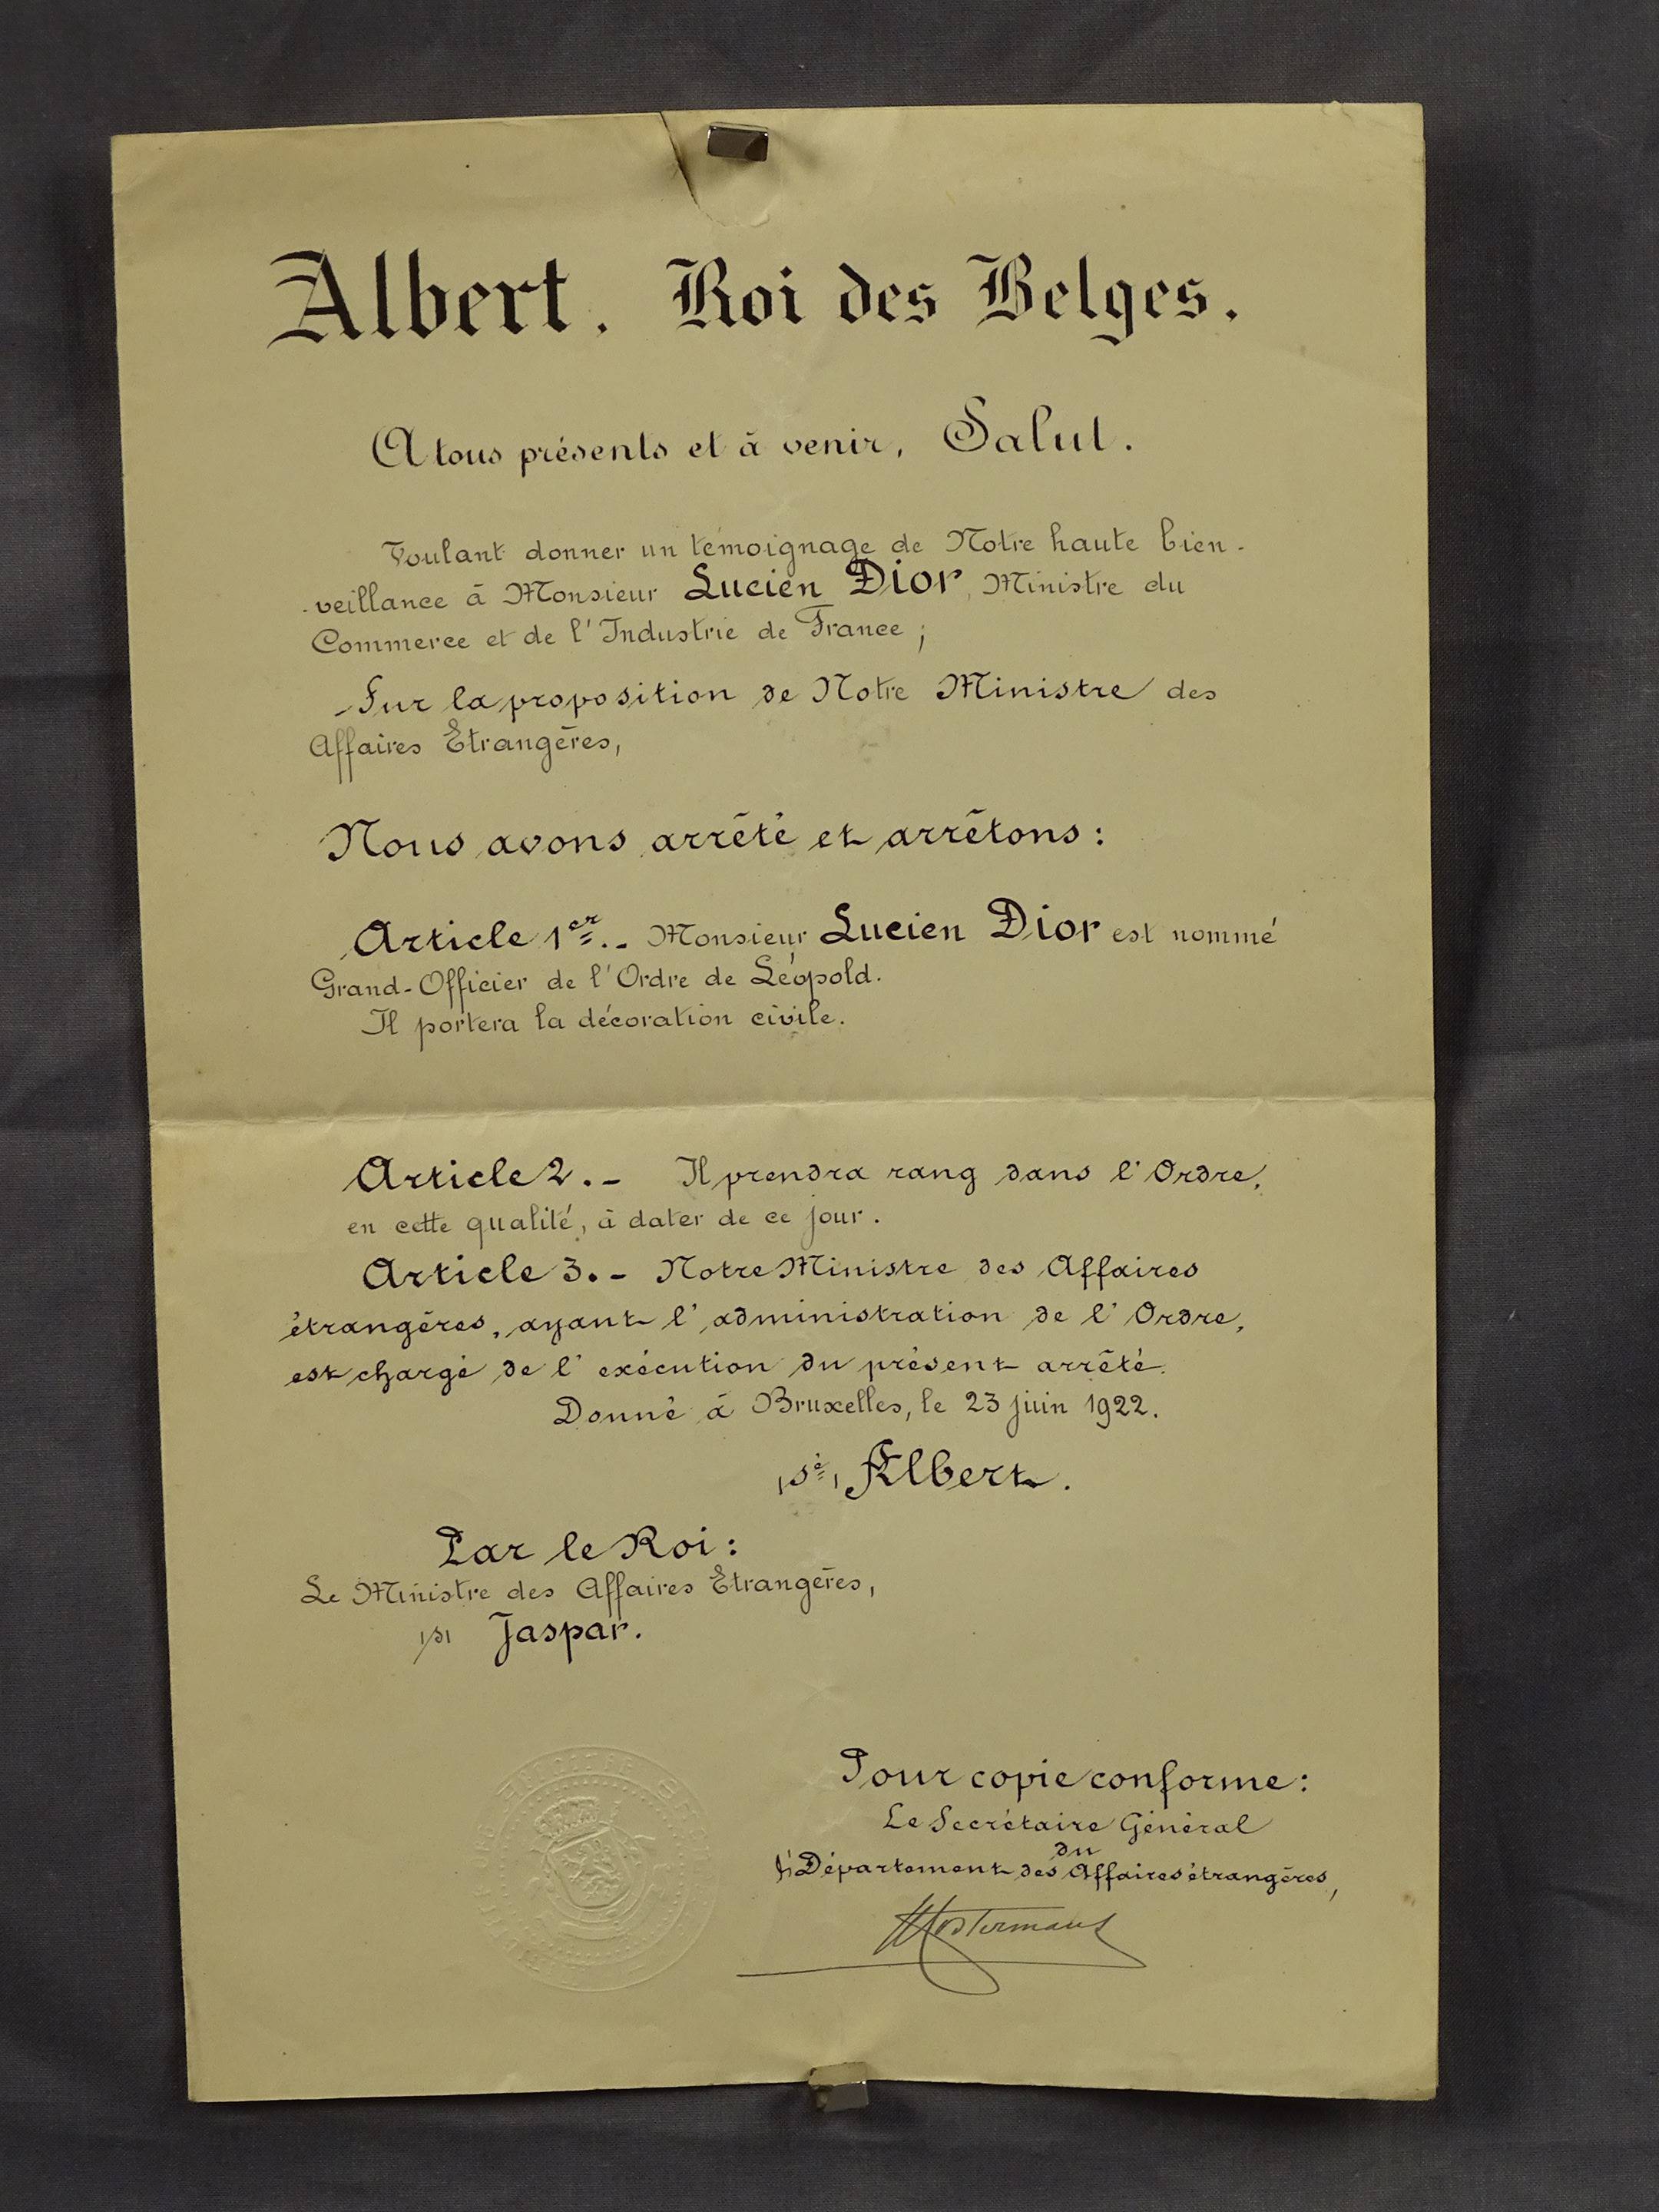 Albert, Roi des Belges.
A tous présents et à venir, Salut.
Voulant donner un témoignage de Notre haute bien-
-veillance à Monsieur Lucien Dior, Ministre du
Commerce et de l'Industrie de France;
Sur la proposition de Notre Ministre des
Affaires Etrangères,
Nous avons arrêté et arrêtons:
Article 1er.- Monsieur Lucien Dior est nommé
Grand-Officier de l'Ordre de Léopold.
Il portera la décoration civile.
Article 2.- Il prendra rang dans l'Ordre,
en cette qualité, à dater de ce jour.
Article 3.- Notre Ministre des Affaires
étrangères, ayant l'administration de l'Ordre,
est chargé de l'exécution du présent arrêté.
Donné à Bruxelles, le 23 juin 1922.
(sé) Albert.
Par le Roi:
Le Ministre des Affaires Etrangères,
(s) Jaspar.
Pour copie conforme:
Le Secrétaire Général
du
Département des Affaires étrangères,